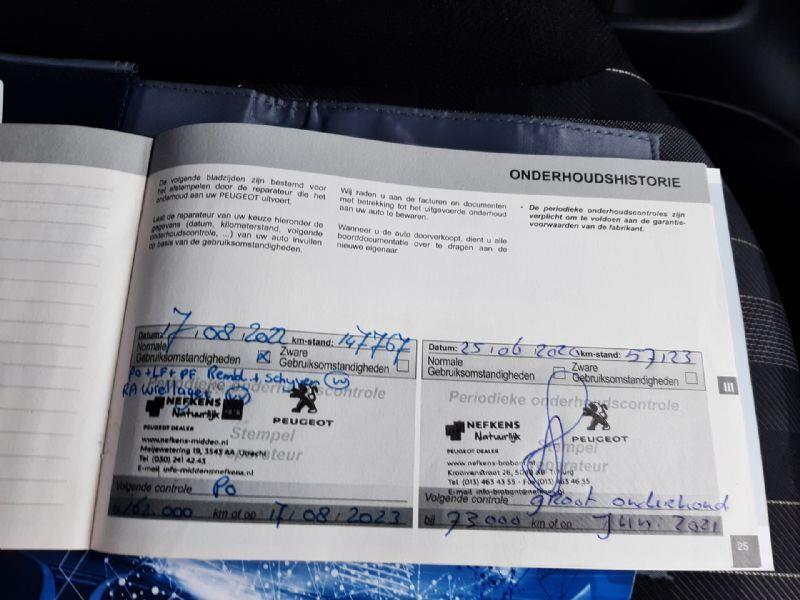 ONDERHOUDSHISTORIE
De volgende bladzijden zijn bestemd voor
het afstempelen door de reparateur die het
onderhoud aan uw PEUGEOT uitvoert.
Laat de reparateur van uw keuze hieronder de
gegevens (datum, kilometerstand, volgende
onderhoudscontrole, ...) van uw auto invullen
op basis van de gebruiksomstandigheden.
Wij raden u aan de facturen en documenten
met betrekking tot het uitgevoerde onderhoud
aan uw auto te bewaren.
Wanneer u de auto doorverkoopt, dient u alle
boorddocumentatie over te dragen aan de
nieuwe eigenaar.
* De periodieke onderhoudscontroles zijn
verplicht om te voldoen aan de garantie-
voorwaarden van de fabrikant.
Datum: 17.08.2022 km-stand: 147767
Normale
Gebruiksomstandigheden
Zware
Gebruiksomstandigheden
Po + LF + PF Rembl. + Schyven (W)
RA wiellager (W)
Periodieke onderhoudscontrole
NEFKENS
Natuurlijk
PEUGEOT
PEUGEOT DEALER
Stempel
reparateur
www.nefkens-midden.nl
Meijewetering 19, 3543 AA Utrecht
Tel (030) 241 42 43
E-mail info-midden@nefkens.nl
Volgende controle Po
162.000 km of op 17.08.2023
Datum: 25.06 2020 km-stand: 57123
Normale
Gebruiksomstandigheden
Zware
Gebruiksomstandigheden
Periodieke onderhoudscontrole
NEFKENS
Natuurlijk
PEUGEOT
PEUGEOT DEALER
Stempel
reparateur
www.nefkens-brabant.nl
Tel (013) 463 43 55 - Fax (013) 463 46 55
E-mail info-brabant@nefkens.nl
Volgende controle groot onderhoud
bij 73000 km of op Juni 2021
III
25